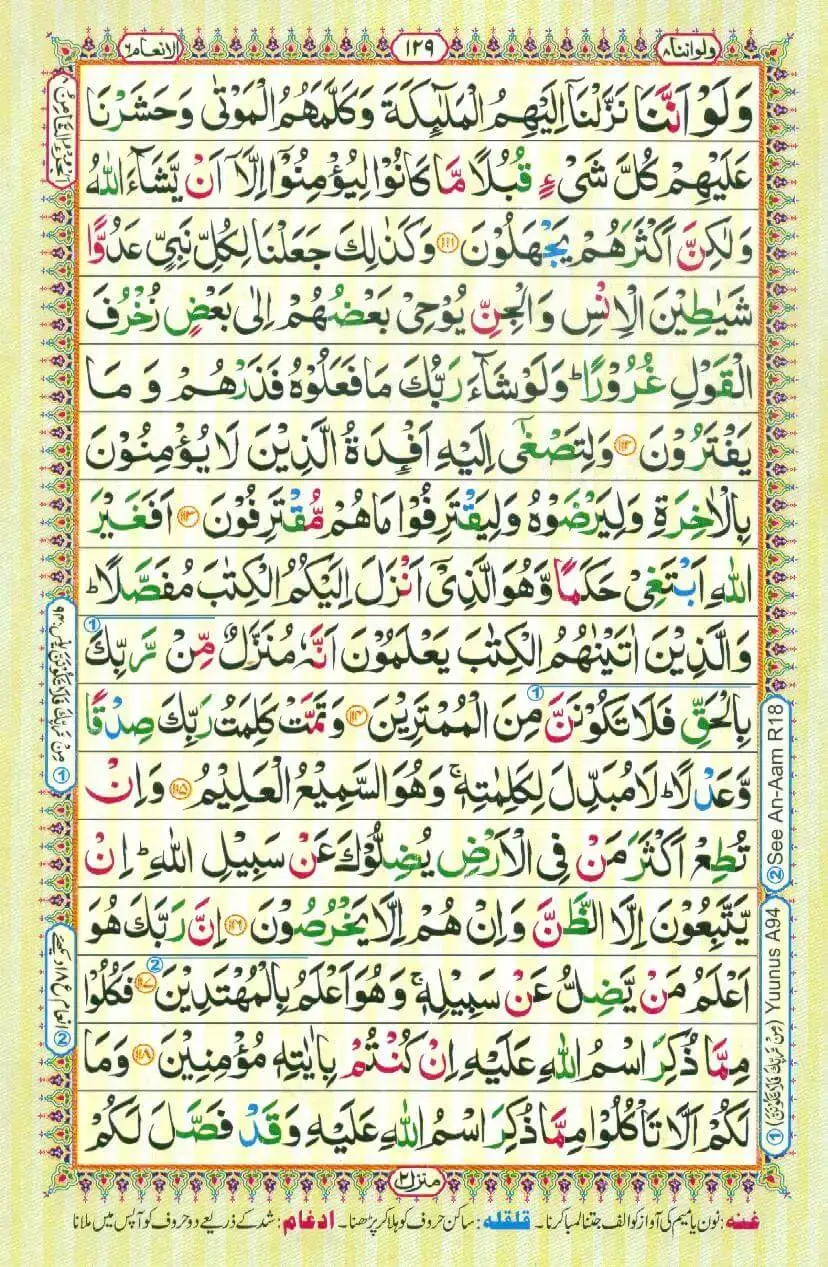 ولواننا٨
١٢٩
الانعام٦
وَلَوْ اَنَّنَا نَزَّلْنَاۤ اِلَيْهِمُ الْمَلٰٓئِكَةَ وَكَلَّمَهُمُ الْمَوْتٰى وَحَشَرْنَا
عَلَيْهِمْ كُلَّ شَىْءٍ قُبُلًا مَّا كَانُوْا لِيُؤْمِنُوْۤا اِلَّاۤ اَنْ يَّشَآءَ اللّٰهُ
وَلٰكِنَّ اَكْثَرَهُمْ يَجْهَلُوْنَ ﴿١١١﴾ وَكَذٰلِكَ جَعَلْنَا لِكُلِّ نَبِىٍّ عَدُوًّا
شَيٰطِيْنَ الْاِنْسِ وَالْجِنِّ يُوْحِىْ بَعْضُهُمْ اِلٰى بَعْضٍ زُخْرُفَ
الْقَوْلِ غُرُوْرًا ؕ وَلَوْ شَآءَ رَبُّكَ مَا فَعَلُوْهُ فَذَرْهُمْ وَمَا
يَفْتَرُوْنَ ﴿١١٢﴾ وَلِتَصْغٰٓى اِلَيْهِ اَفْـِٕدَةُ الَّذِيْنَ لَا يُؤْمِنُوْنَ
بِالْاٰخِرَةِ وَلِيَرْضَوْهُ وَلِيَقْتَرِفُوْا مَا هُمْ مُّقْتَرِفُوْنَ ﴿١١٣﴾ اَفَغَيْرَ
اللّٰهِ اَبْتَغِىْ حَكَمًا وَّهُوَ الَّذِىْۤ اَنْزَلَ اِلَيْكُمُ الْكِتٰبَ مُفَصَّلًا ؕ
وَالَّذِيْنَ اٰتَيْنٰهُمُ الْكِتٰبَ يَعْلَمُوْنَ اَنَّهٗ مُنَزَّلٌ مِّنْ رَّبِّكَ
بِالْحَقِّ فَلَا تَكُوْنَنَّ مِنَ الْمُمْتَرِيْنَ ﴿١١٤﴾ وَتَمَّتْ كَلِمَتُ رَبِّكَ صِدْقًا
وَّعَدْلًا ؕ لَا مُبَدِّلَ لِكَلِمٰتِهٖ ۚ وَهُوَ السَّمِيْعُ الْعَلِيْمُ ﴿١١٥﴾ وَاِنْ
تُطِعْ اَكْثَرَ مَنْ فِى الْاَرْضِ يُضِلُّوْكَ عَنْ سَبِيْلِ اللّٰهِ ؕ اِنْ
يَّتَّبِعُوْنَ اِلَّا الظَّنَّ وَاِنْ هُمْ اِلَّا يَخْرُصُوْنَ ﴿١١٦﴾ اِنَّ رَبَّكَ هُوَ
اَعْلَمُ مَنْ يَّضِلُّ عَنْ سَبِيْلِهٖ ۚ وَهُوَ اَعْلَمُ بِالْمُهْتَدِيْنَ ﴿١١٧﴾ فَكُلُوْا
مِمَّا ذُكِرَ اسْمُ اللّٰهِ عَلَيْهِ اِنْ كُنْتُمْ بِاٰيٰتِهٖ مُؤْمِنِيْنَ ﴿١١٨﴾ وَمَا
لَكُمْ اَلَّا تَاْكُلُوْا مِمَّا ذُكِرَ اسْمُ اللّٰهِ عَلَيْهِ وَقَدْ فَصَّلَ لَكُمْ
② See An-Aam R18
① (مِنْ رَّبِّكَ فَلَا تَكُوْنَنَّ) Yuunus A94
منزل٢
غنه: نون یا میم کی آواز کو الف جتنا لمبا کرنا۔ قلقله: ساکن حروف کو ہلا کر پڑھنا۔ ادغام: شد کے ذریعے دو حروف کو آپس میں ملانا